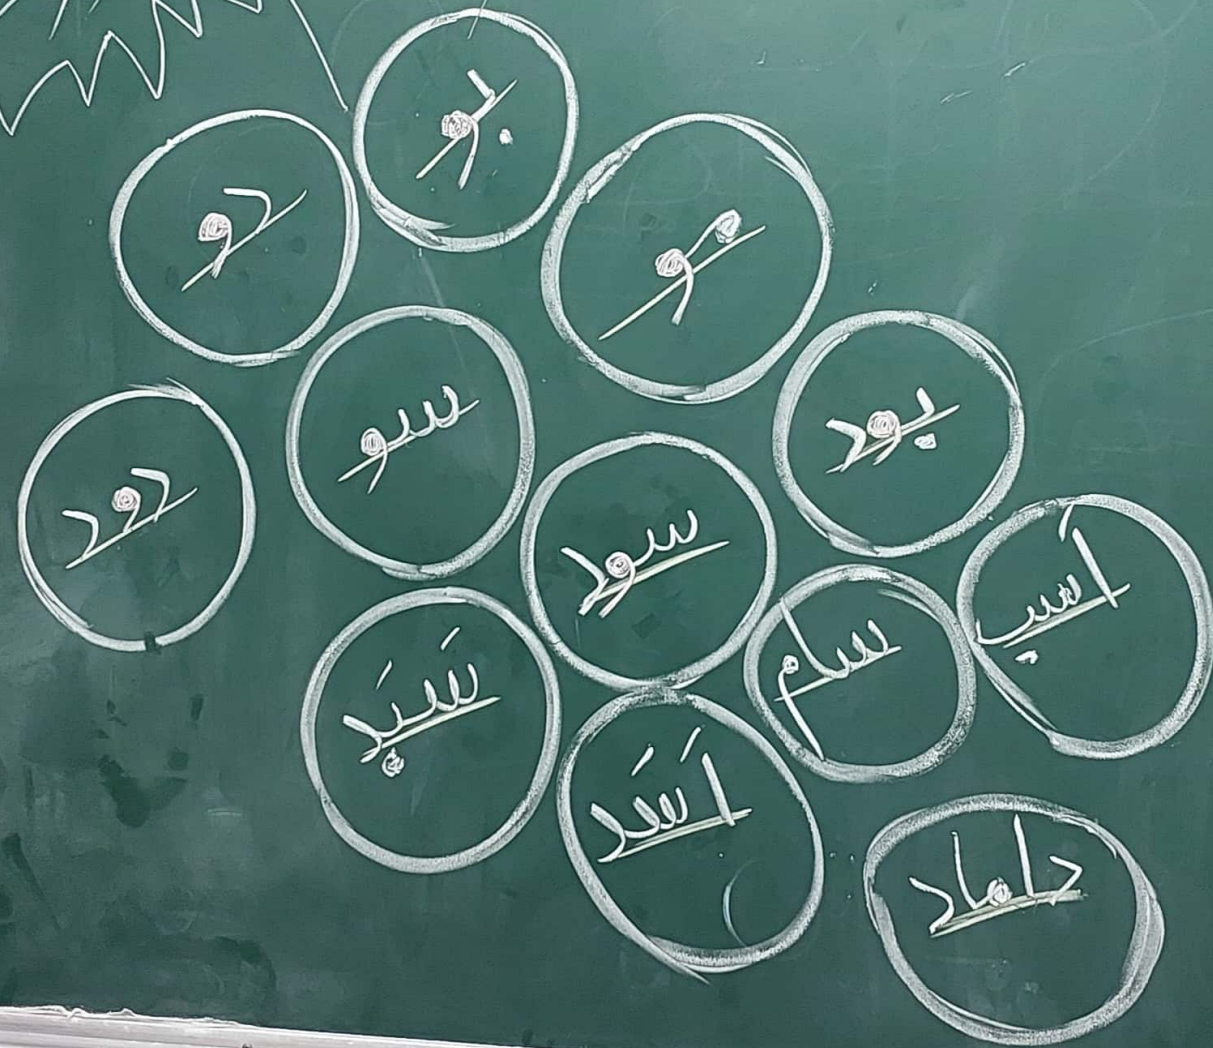 بو
دو
مو
سو
بود
دود
سود
اَسب
سام
سَبَد
اَسَد
داماد